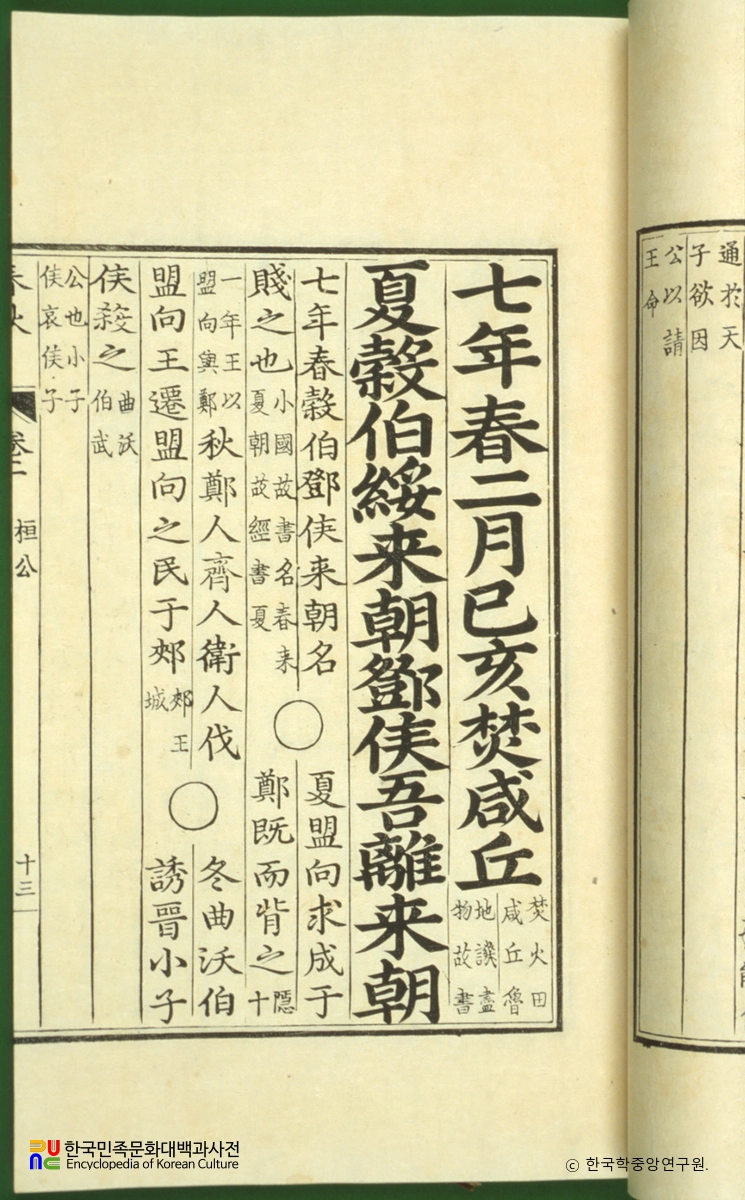 通扵天
子欲因
公以請
王命
七年春二月巳亥焚咸丘
焚火田
咸丘魯
地譏盡
物故書
夏穀伯綏来朝鄧侯吾離来朝
七年春穀伯鄧侯来朝名
賤之也
小國故書名春来
夏朝故經書夏
○
夏盟向求成于
鄭既而背之
隱
十
一年王以
盟向與鄭
秋鄭人齊人衛人伐
盟向王遷盟向之民于郟
郟王
城
○
冬曲沃伯
誘晉小子
侯殺之
曲沃
伯武
公也小子
侯哀侯子
春秋
卷二
桓公
十三
한국민족문화대백과사전
Encyclopedia of Korean Culture
© 한국학중앙연구원.